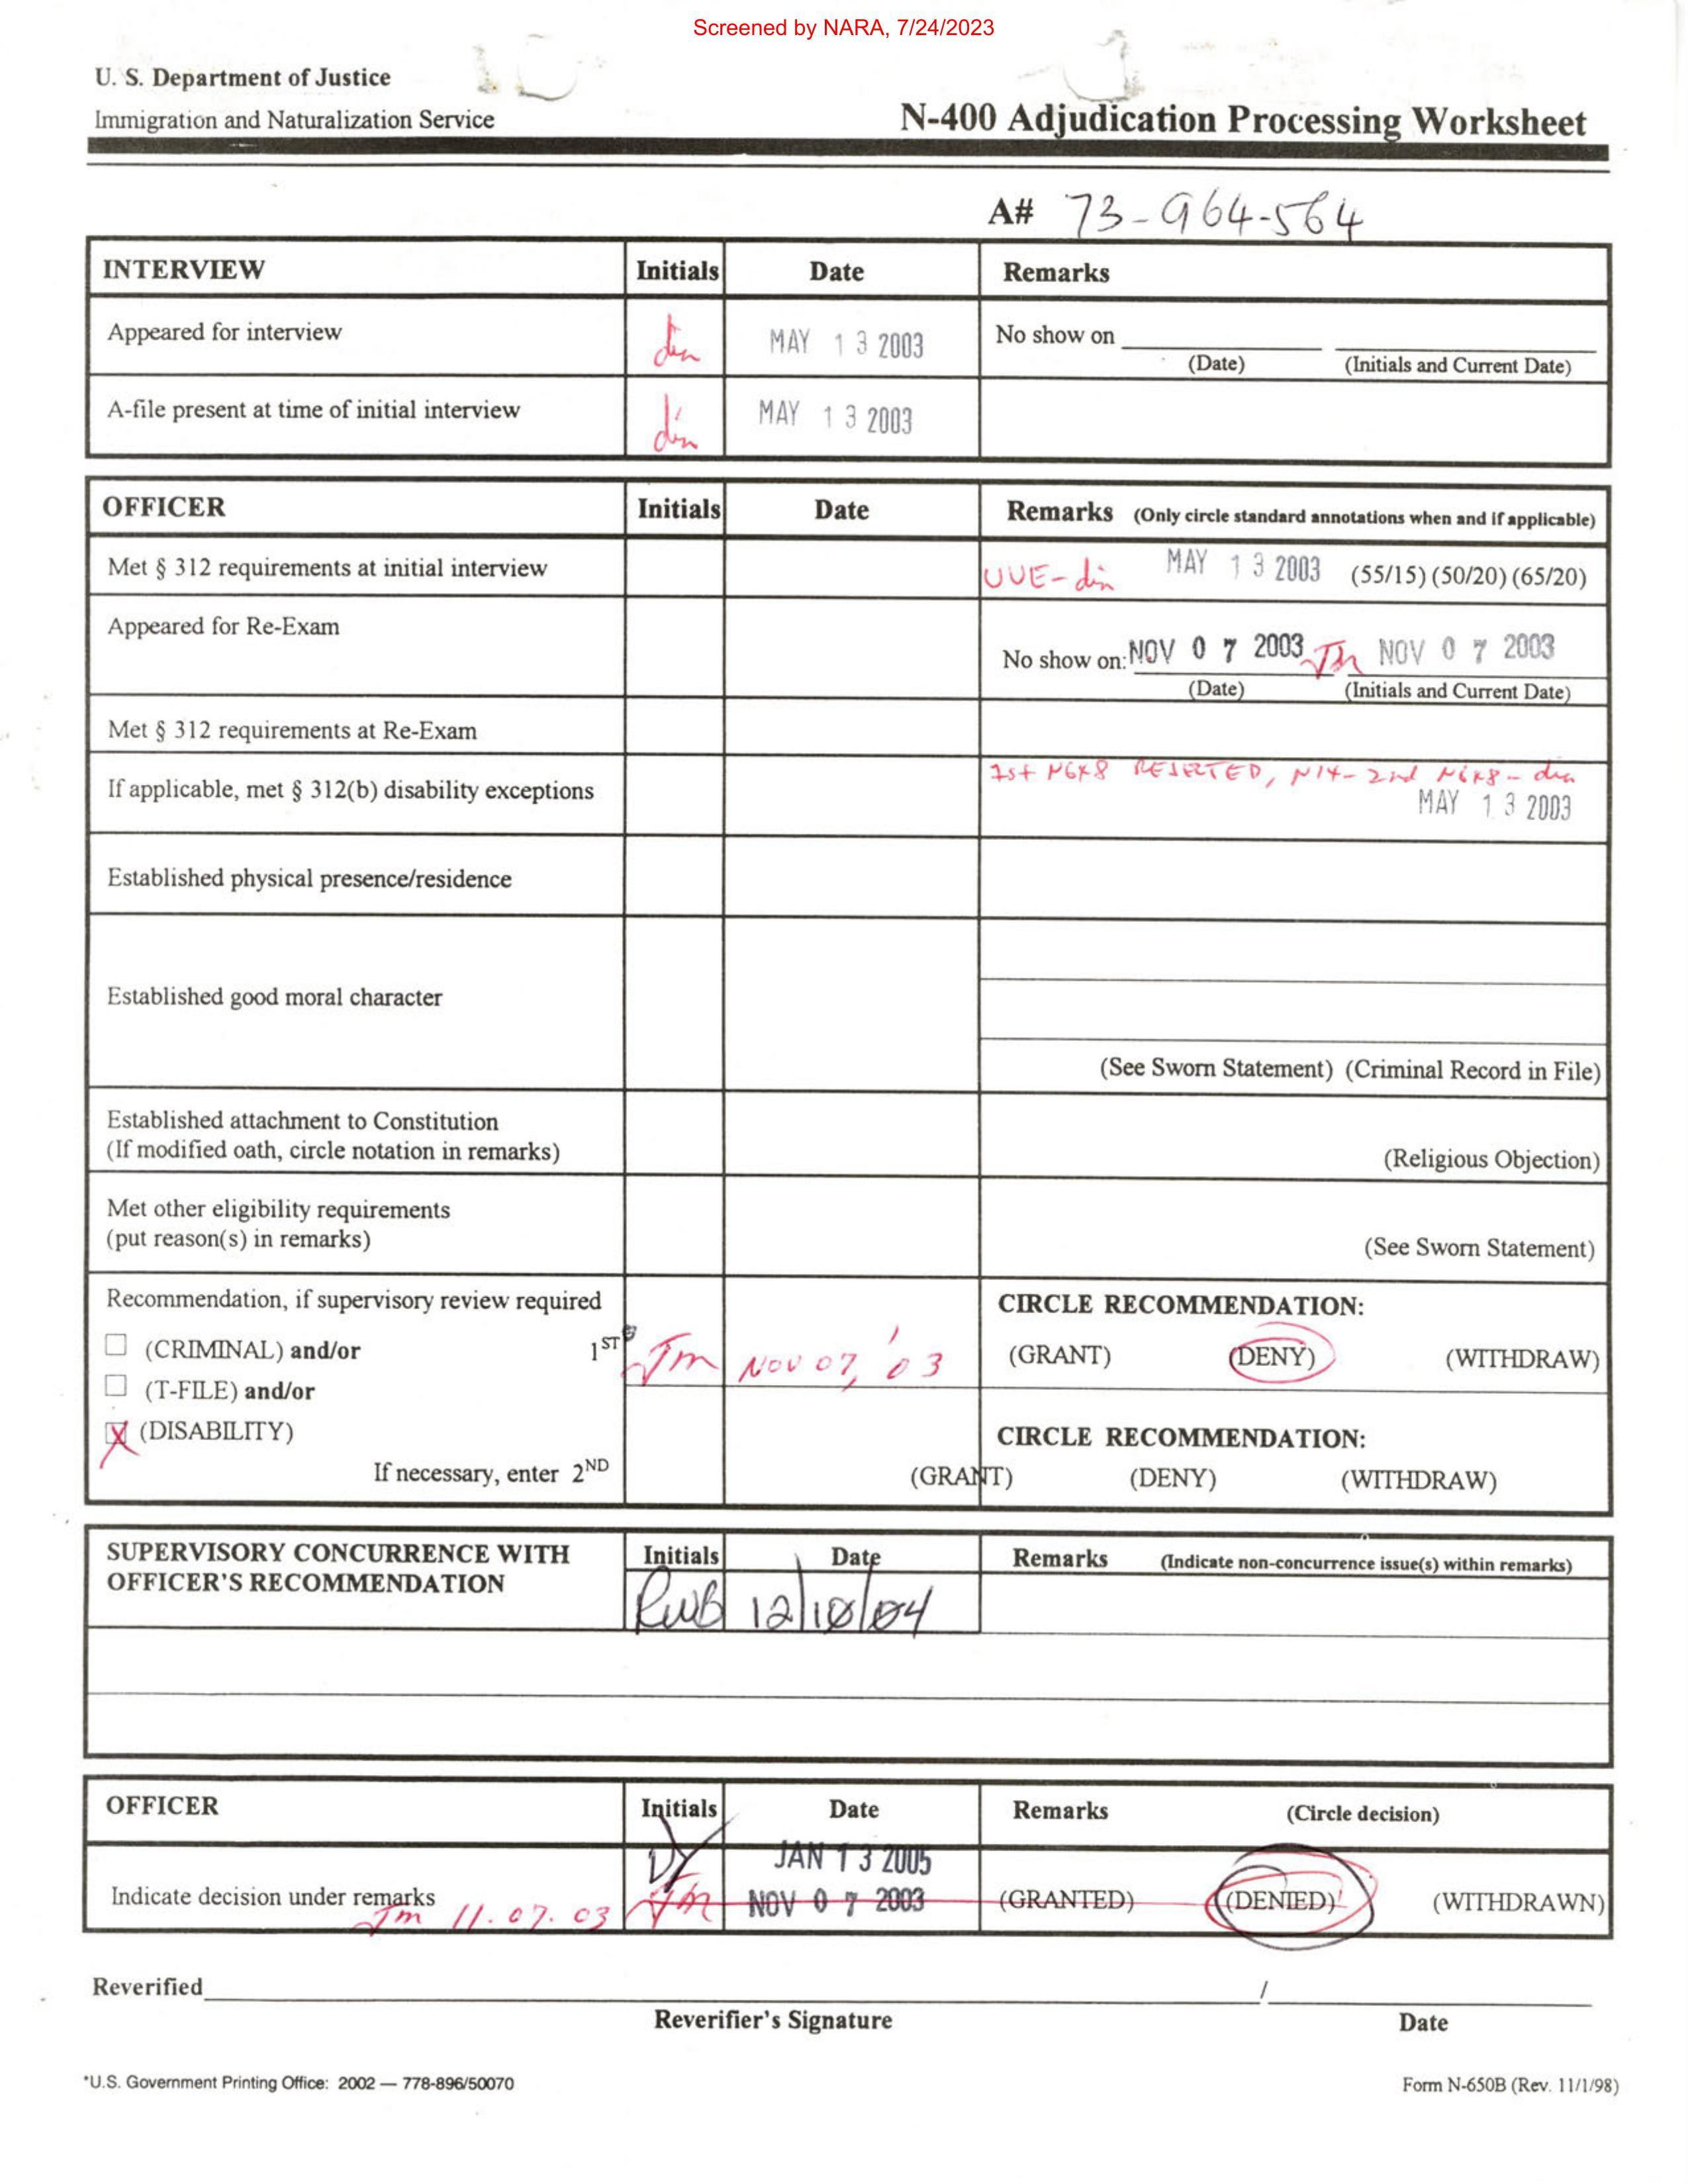 Screened by NARA, 7/24/2023
U. S. Department of Justice
Immigration and Naturalization Service
N-400 Adjudication Processing Worksheet
A# 73-964-564
INTERVIEW Initials Date Remarks
Appeared for interview MAY 13 2003 No show on
(Date) (Initials and Current Date)
A-file present at time of initial interview MAY 13 2003
OFFICER Initials Date Remarks (Only circle standard annotations when and if applicable)
Met § 312 requirements at initial interview UUE- MAY 13 2003 (55/15) (50/20) (65/20)
Appeared for Re-Exam
No show on: NOV 07 2003 Jm NOV 07 2003
(Date) (Initials and Current Date)
Met § 312 requirements at Re-Exam
1st N648 REJECTED, N14- 2nd N648-
If applicable, met § 312(b) disability exceptions
MAY 13 2003
Established physical presence/residence
Established good moral character
(See Sworn Statement) (Criminal Record in File)
Established attachment to Constitution
(If modified oath, circle notation in remarks) (Religious Objection)
Met other eligibility requirements
(put reason(s) in remarks) (See Sworn Statement)
Recommendation, if supervisory review required CIRCLE RECOMMENDATION:
(CRIMINAL) and/or 1ST Jm NOV 07, '03 (GRANT) (DENY) (WITHDRAW)
(T-FILE) and/or
X (DISABILITY) CIRCLE RECOMMENDATION:
If necessary, enter 2ND (GRANT) (DENY) (WITHDRAW)
SUPERVISORY CONCURRENCE WITH Initials Date Remarks (Indicate non-concurrence issue(s) within remarks)
OFFICER'S RECOMMENDATION RWB 12/10/04
OFFICER Initials Date Remarks (Circle decision)
DY JAN 13 2005
Indicate decision under remarks Jm NOV 07 2003 (GRANTED) (DENIED) (WITHDRAWN)
Jm 11.07.03
Reverified /
Reverifier's Signature Date
*U.S. Government Printing Office: 2002 — 778-896/50070 Form N-650B (Rev. 11/1/98)